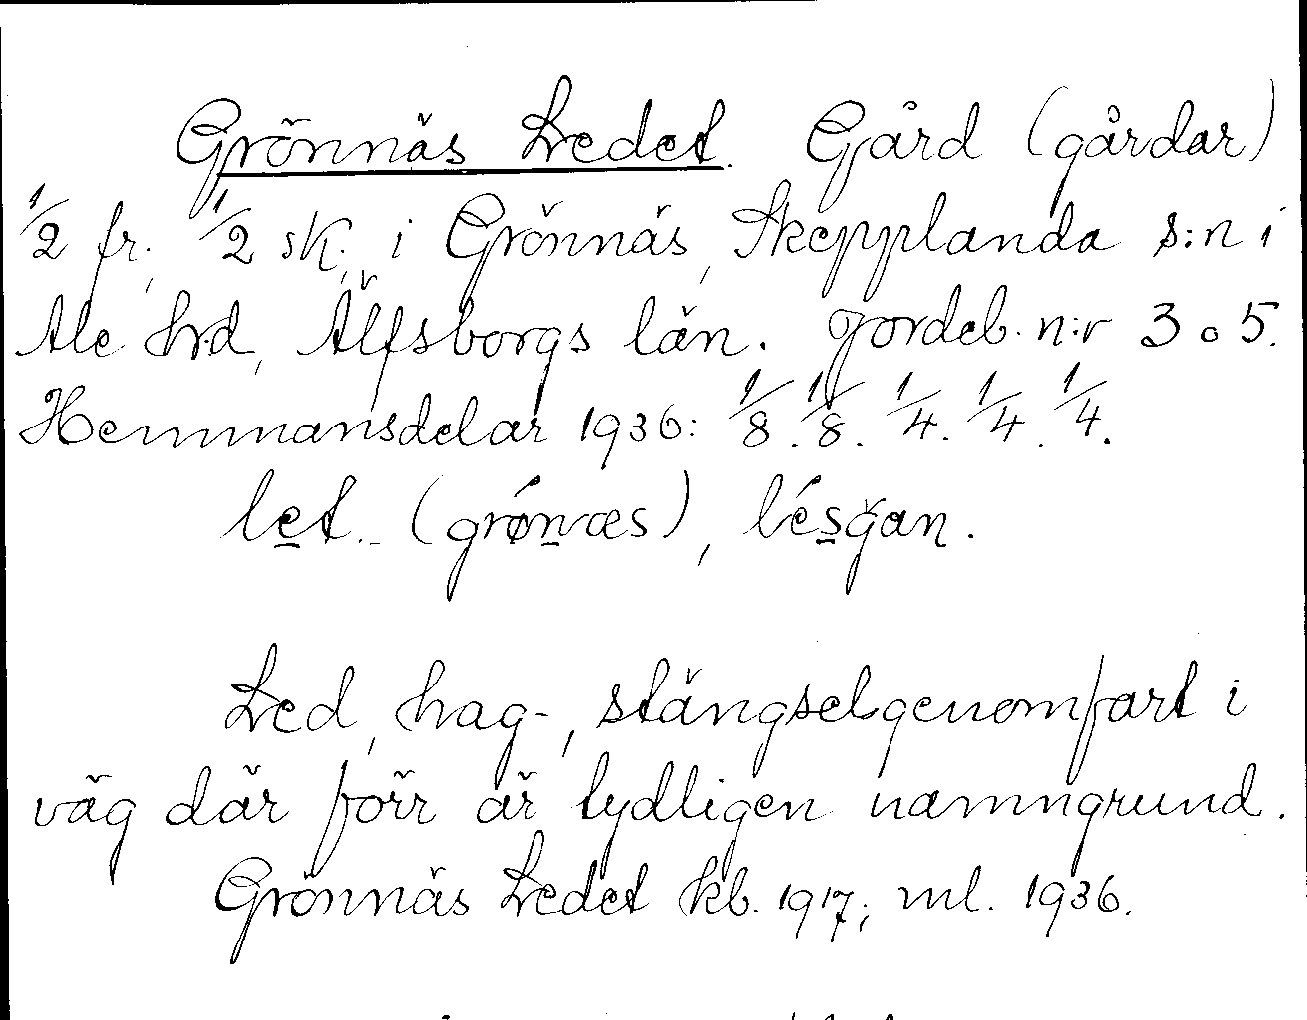 Grönnäs Ledet. Gård (gårdar)
1/2 fr., 1/2 sk., i Grönnäs, Skepplanda s:n i
Ale hrd, Älfsborgs län. Jordeb. n:r 3 o 5.
Hemmansdelar 1936: 1/8. 1/8. 1/4. 1/4. 1/4.
let. (grǿnæs), lésgan.
Led, hag-, stängselgenomfart i
väg där förr är tydligen namngrund.
Grönnäs Ledet kb. 1917; ml. 1936.